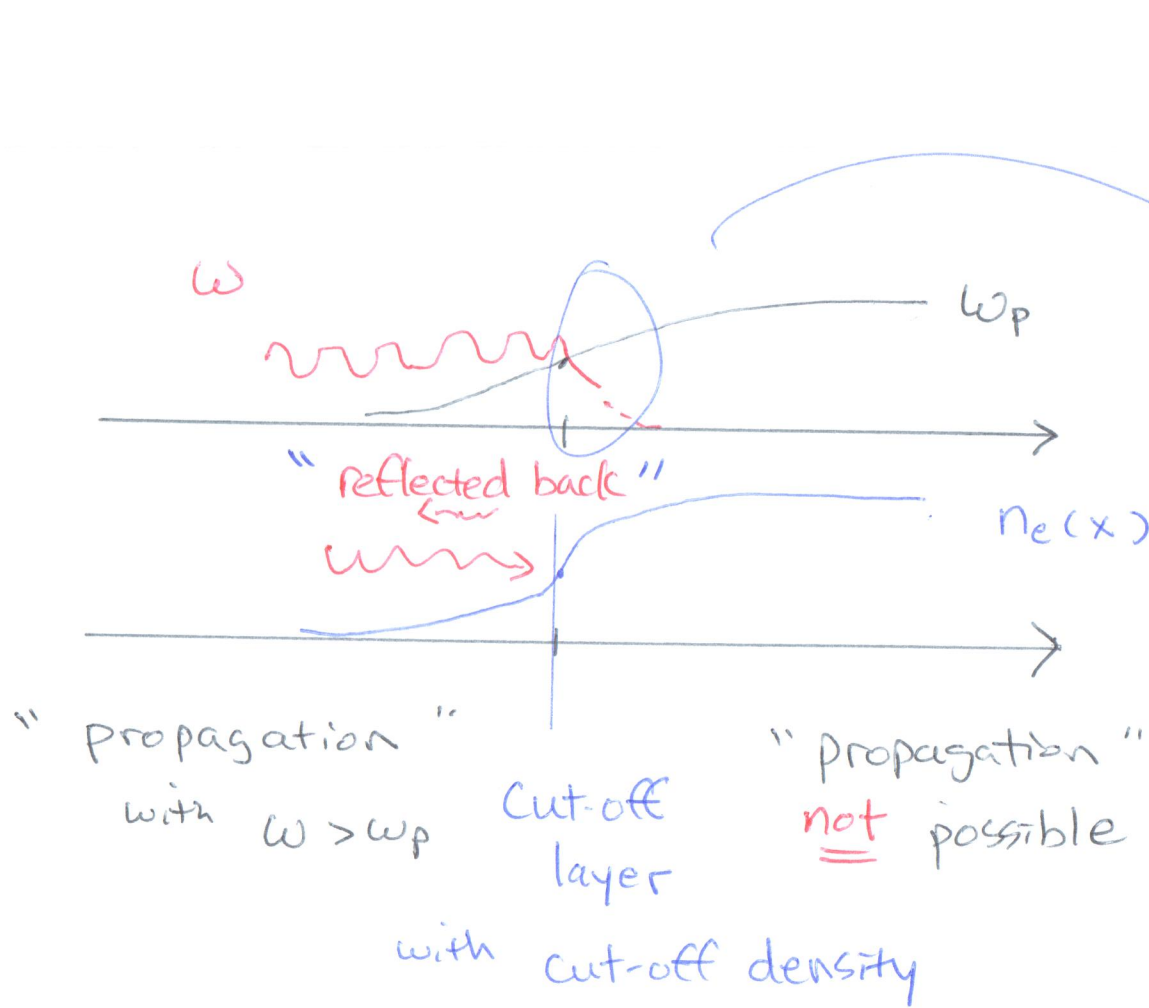 ω
ωp
" reflected back "
ne(x)
" propagation "
with ω > ωp
cut-off
layer
with cut-off density
" propagation "
not possible